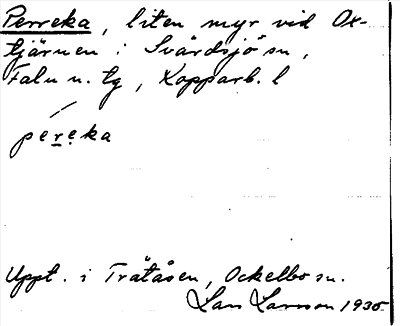 Perreka, liten myr vid Ox-
tjärnen i Svärdsjö sn,
Falu n. tg, Kopparb. l
pereka
Uppt. i Trätåsen, Ockelbo sn.
Lars Larsson 1935